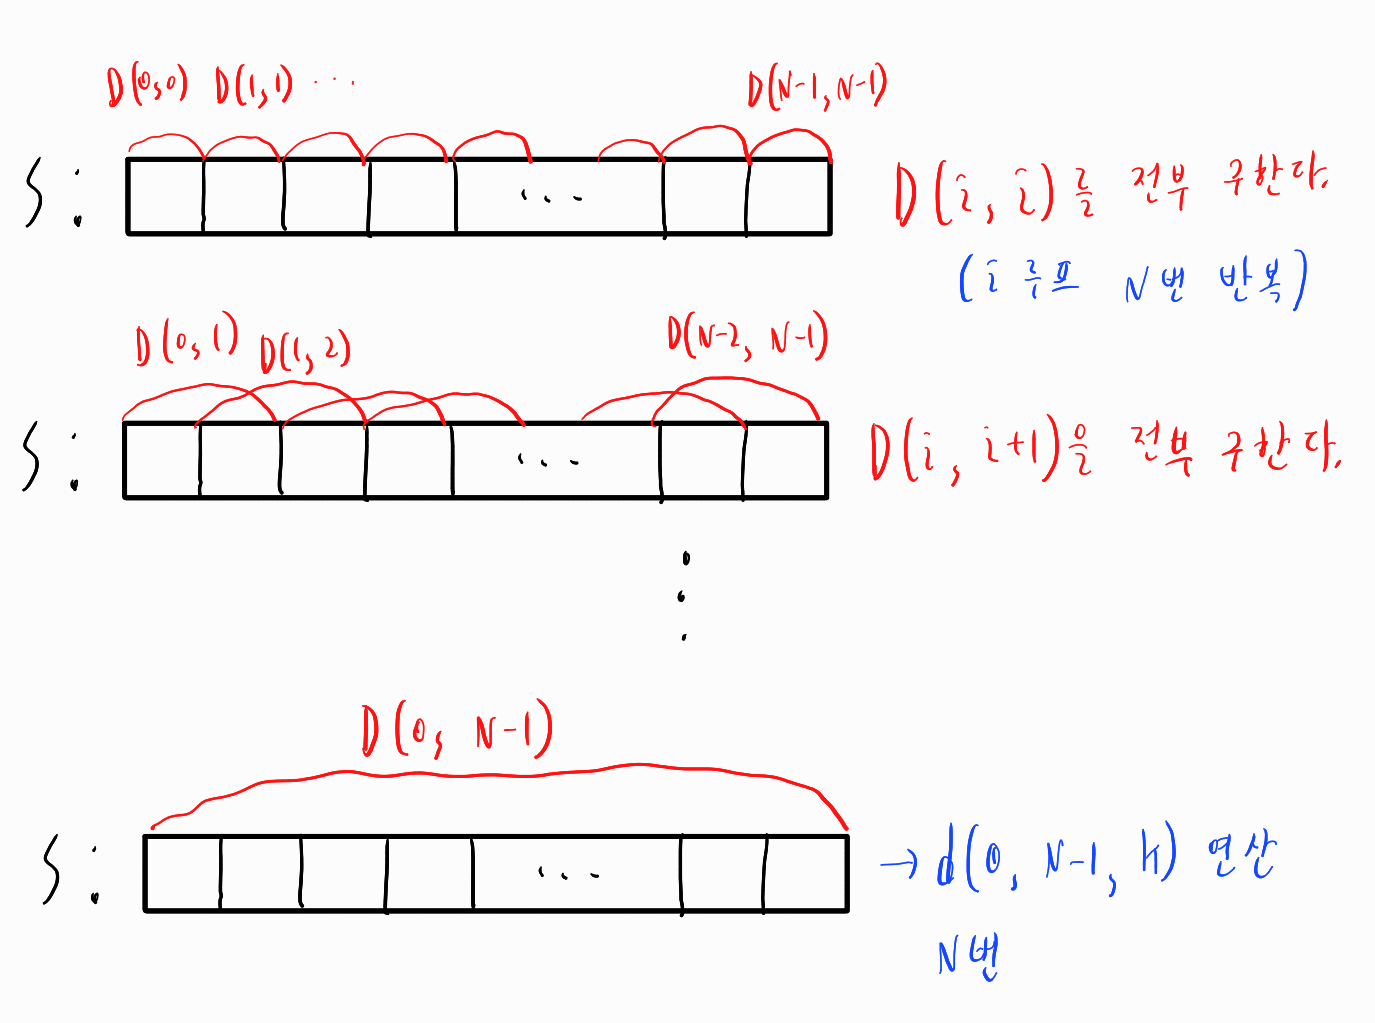 D(0,0) D(1,1) ... D(N-1, N-1)
S : ... D(i, i)를 전부 구한다.
(i 루프 N번 반복)
D(0, 1) D(1, 2) D(N-2, N-1)
S : ... D(i, i+1)을 전부 구한다.
D(0, N-1)
S : ... → d(0, N-1, k) 연산
N번